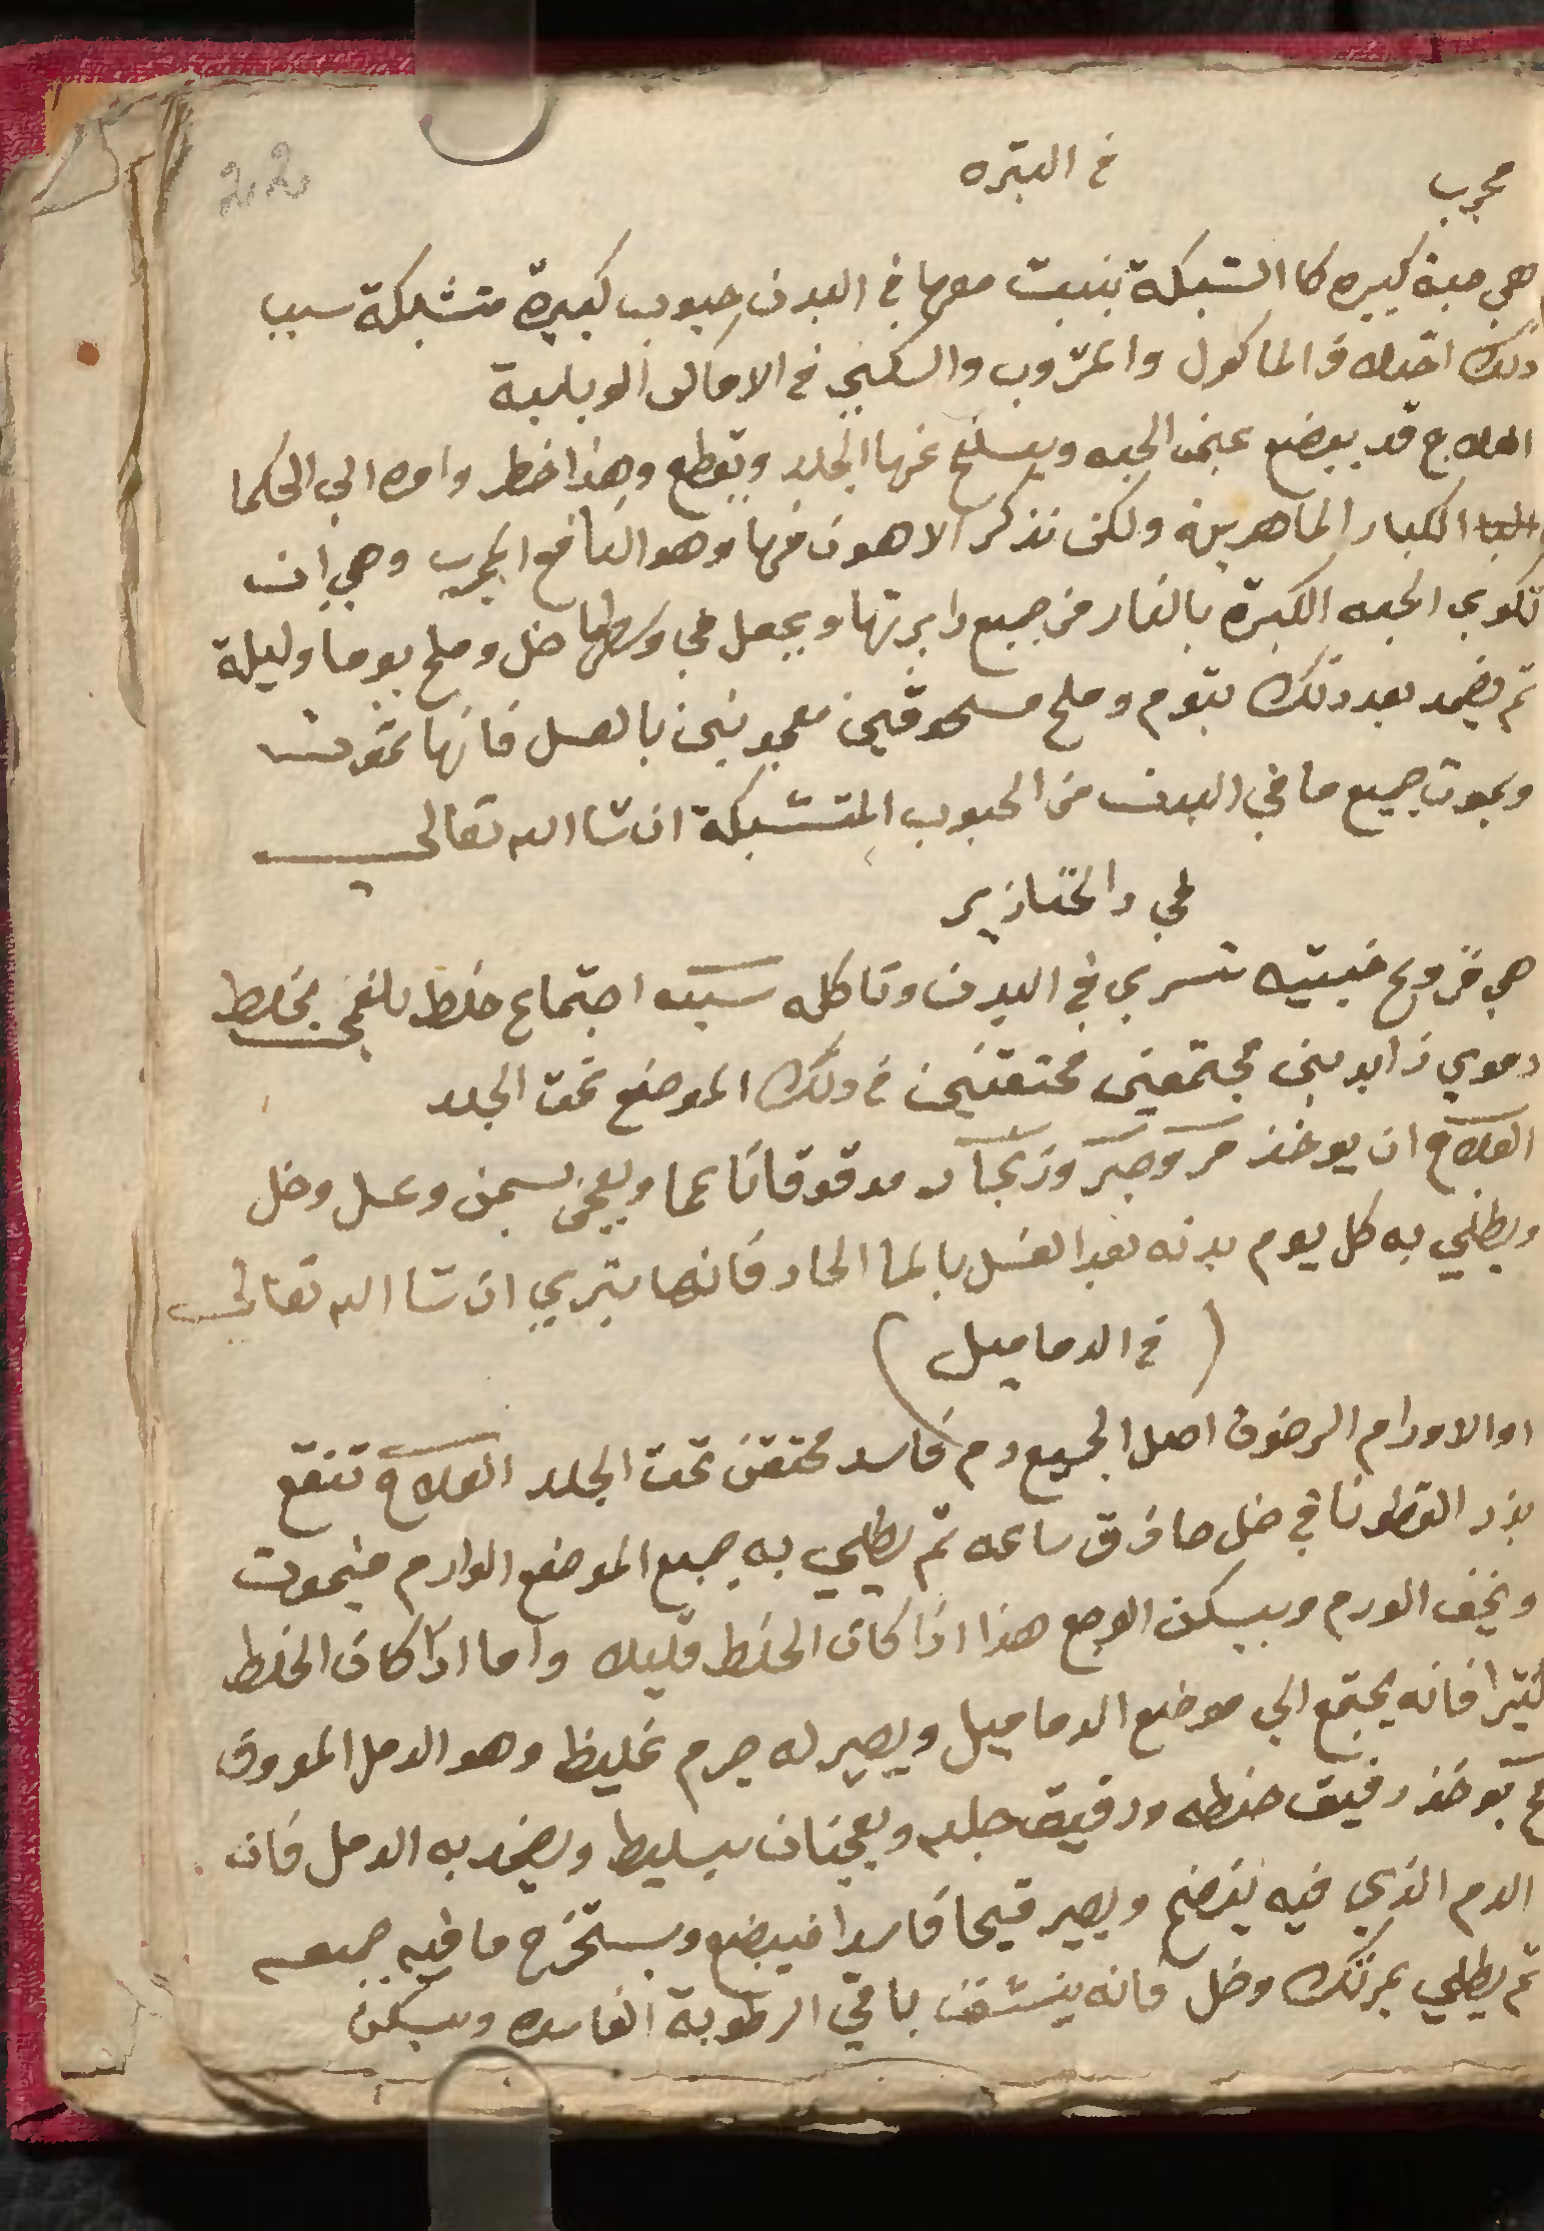 22
مجرب
في البثره
هي حبة كبيره كا الشبكة ينبت معها في البدن حبوب كبيرة متشبكة سبب
ذلك اختلاف الماكول والمشروب والسكنى في الاماكن الوبلية
العلاج قد يبضع عن الحبه ويسلخ عنها الجلد وتقطع وهذا خطر وامره الي الحكما
الكبار الماهرين ولكن نذكر الاهون منها وهو النافع المجرب وهي ان
تكوي الحبه الكبيرة بالنار من جميع دايرتها ويجعل في وسطها خل وملح يوما وليلة
ثم يضمد بعد ذلك بثوم وملح مسحوقين معجونين بالعسل فانها تموت
ويموت جميع ما في البدن من الحبوب المتشبكة ان شا الله تعالى
في دا الخنازير
هي قروح خبيثه تسري في البدن وتاكله سببه اجتماع خلط بلغمي بخلط
دموي زايدين مجتمعين محتقنين في ذلك الموضع تحت الجلد
العلاج ان يوخذ مر وصبر وزنجار مدقوقا ناعما ويعجن بسمن وعسل وخل
ويطلي به كل يوم بدنه بعد الغسل بالما الحار فانها تبري ان شا الله تعالى
(في الدماميل)
او الاورام الرخوة اصل الجميع دم فاسد محتقن تحت الجلد العلاج تنقع
بذر القطونا في خل حاذق ساعه ثم يطلي به جميع الموضع الوارم فيموت
ويخف الورم ويسكن الوجع هذا اذا كان الخلط قليلا واما اذا كان الخلط
كثيرا فانه يجتمع الي موضع الدماميل ويصير له جرم غليظ وهو الدمل المعروف
يوخذ دقيق حنطه ودقيق حلبه ويعجنان بسليط ويضمد به الدمل فان
الدم الذي فيه ينضج ويصير قيحا فاسدا فيبضع ويستخرج ما فيه جميعه
ثم يطلي بمرتك وخل فانه ينشف باقي الرطوبة الفاسده ويسكن